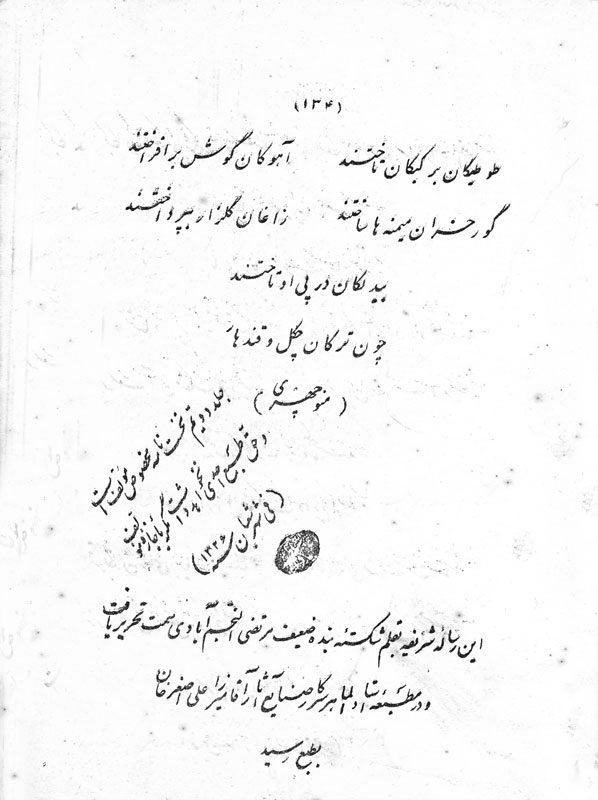 (۱۳۴)
طوطیکان بر کبکان تاختند آهوکان گوش برافراختند
گورخران میمنه ها ساختند زاغان گلزار بپرداختند
بیدلکان در پی او تاختند
چون ترکان چکل و قندهار
(منوچهری)
جلد دویم نخست نامه مخصوص مؤلف است
و حق طبع احدی
(فی شهر شعبان سنه ۱۳۲۶)
این رساله شریفه بقلم شکسته بنده ضعیف مرتضی النجم آبادی سمت تحریر یافت
و در مطبعه استاد الماهر سرکار صنایع آثار آقا میرزا علی اصغر خان
بطبع رسید